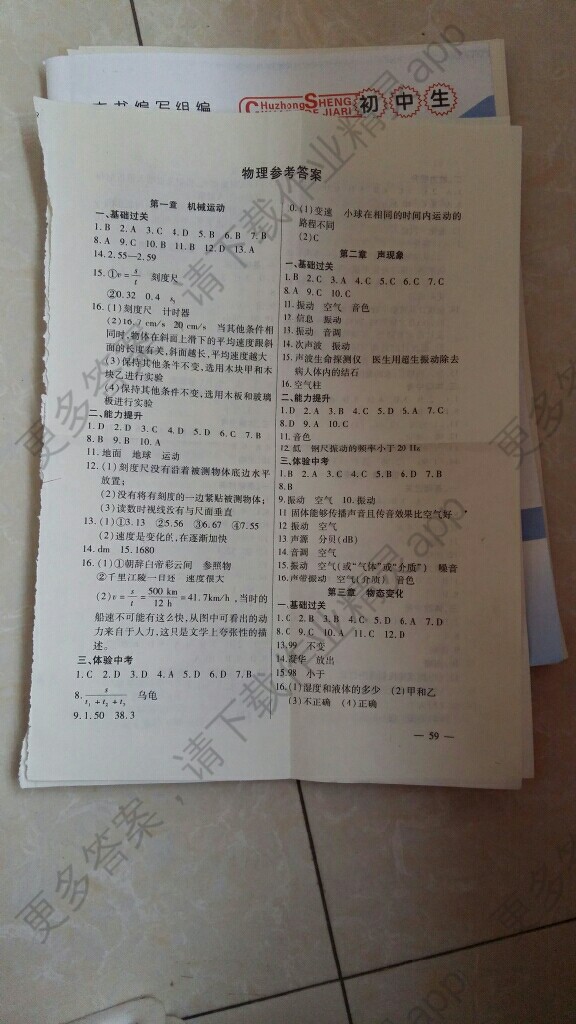 本书编写组编
Chuzhong SHENG
初中生
物理参考答案
第一章 机械运动
一、基础过关
1.B 2.A 3.C 4.D 5.B 6.B 7.B
8.A 9.C 10.B 11.B 12.D 13.A
14.2.55—2.59
15.①v=s/t 刻度尺
②0.32 0.4 s,
16.(1)刻度尺 计时器
(2)16.7 cm/s 20 cm/s 当其他条件相
同时,物体在斜面上滑下的平均速度跟斜
面的长度有关,斜面越长,平均速度越大
(3)保持其他条件不变,选用木块甲和木
块乙进行实验
(4)保持其他条件不变,选用木板和玻璃
板进行实验
二、能力提升
1.D 2.D 3.C 4.D 5.D 6.C 7.B
8.B 9.B 10.A
11.地面 地球 运动
12.(1)刻度尺没有沿着被测物体底边水平
放置;
(2)没有将有刻度的一边紧贴被测物体;
(3)读数时视线没有与尺面垂直
13.(1)①3.13 ②5.56 ③6.67 ④7.55
(2)速度是变化的,在逐渐加快
14.dm 15.1680
16.(1)①朝辞白帝彩云间 参照物
②千里江陵一日还 速度很大
(2)v=s/t=500 km/12 h=41.7km/h,当时的
船速不可能有这么快,从图中可看出的动
力来自于人力,这只是文学上夸张性的描
述。
三、体验中考
1.C 2.D 3.D 4.A 5.D 6.D 7.B
8.s/(t₁+t₂+t₃) 乌龟
9.1.50 38.3
0.(1)变速 小球在相同的时间内运动的
路程不同
(2)C
第二章 声现象
一、基础过关
1.B 2.C 3.A 4.C 5.C 6.C 7.C
8.A 9.C 10.C
11.振动 空气 音色
12.信息 振动
13.振动 音调
14.次声波 振动
15.声波生命探测仪 医生用超生振动除去
病人体内的结石
16.空气柱
二、能力提升
1.D 2.A 3.A 4.C 5.D 5.A 7.C
8.D 9.A 10.C
11.音色
12.低 钢尺振动的频率小于20 Hz
三、体验中考
1.B 2.A 3.C 4.C 5.B 6.D 7.B
8.B
9.振动 空气 10.振动
11 固体能够传播声音且传音效果比空气好
12 振动 空气
13.声源 分贝(dB)
14.音调 空气
15.振动 空气(或“气体”或“介质”) 噪音
16.声带振动 空气(介质) 音色
第三章 物态变化
一、基础过关
1.C 2.B 3.B 4.C 5.D 6.A 7.D
8.C 9.C 10.A 11.C 12.D
13.99 不变
14.凝华 放出
15.98 小于
16.(1)湿度和液体的多少 (2)甲和乙
(3)不正确 (4)正确
— 59 —
更多答案，请下载作业精灵app
更多答案，请下载作业精灵app